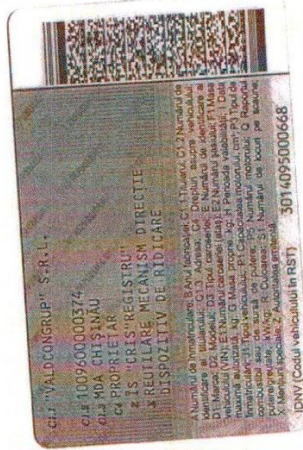 C1.1 "VALDCONGRUP" S.R.L.
C1.2 1009600000374
C1.3 MDA CHIȘINĂU
C4 PROPRIETAR
Z ÎS "CRIS"REGISTRU"
REUTILARE MECANISM DIRECȚIE
DISPOZITIV DE RIDICARE
A Numărul de înmatriculare; B Anul fabricației; C1.1 Titularul; C1.2 Numărul de
identificare al titularului; C4 Dreptul asupra vehiculului;
D1 Marca; D2 Modelul; D3 Tipul caroseriei; E Numărul de identificare al
vehiculului (VIN); E1 Numărul caroseriei (șasiu); E2 Numărul șasiului; F1 Masa
maximă autorizată, kg; G Masa proprie, kg; H Perioada valabilității; I Data
înmatriculării; J1 Tipul vehiculului; P1 Capacitatea motorului, cm³; P3 Tipul de
combustibil sau de sursă de putere; P5 Numărul motorului; Q Raportul
putere/greutate, kW/kg; R Culoarea; S1 Numărul de locuri pe scaune;
Z Mențiuni speciale; Autoritatea emitentă
IDNV (Codul vehiculului în RST) 3014095000668